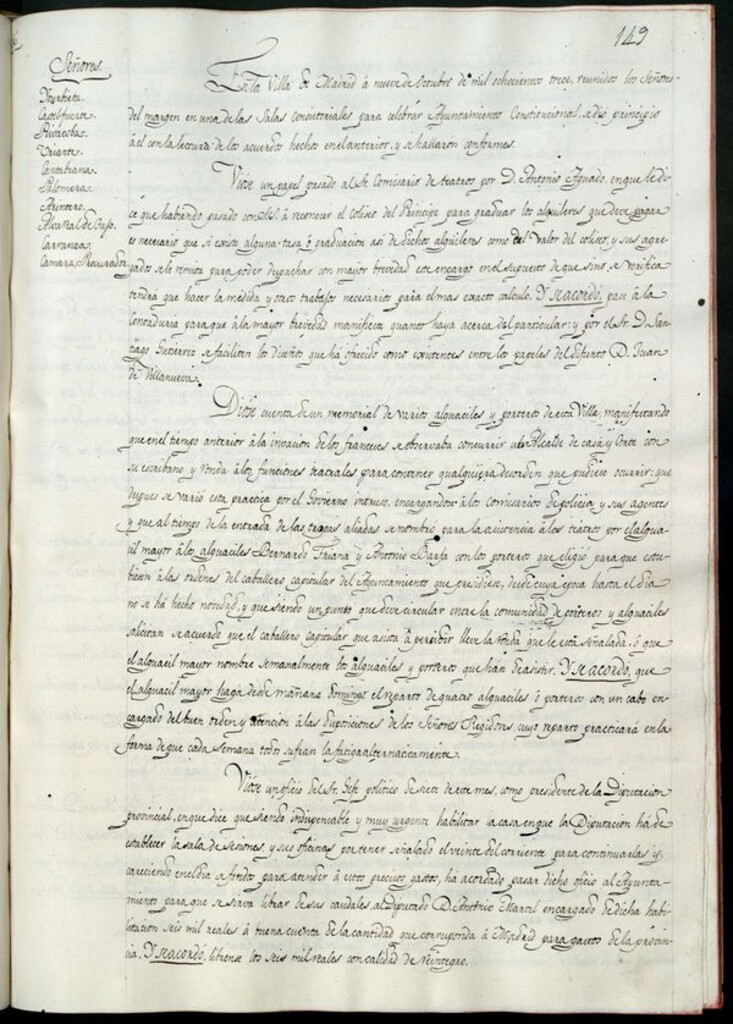 149
Señores.
Yturbieta.
Castelfuerte.
Rivacoba.
Uriarte.
Cantabrana.
Palomera.
Arintero.
Alvarez del Gayo.
Carranza.
Camara, Procurador
En la Villa de Madrid à nueve de Octubre de mil ochocientos trece, reunidos los Señores
del margen en una de las Salas consistoriales para celebrar Ayuntamiento Constitucional, se dio principio
à el con la lectura de los acuerdos hechos en el anterior, y se hallaron conformes.
Viose un papel pasado al Sr. Comisario de teatros por D. Antonio Aguado, en que le di-
ce que habiendo pasado con el à reconocer el coliseo del Principe para graduar los alquileres que debe pagar
es necesario que si existe alguna tasa ò graduacion asi de dichos alquileres como del valor del coliseo, y sus agre-
gados se le remita para poder despachar con mayor brevedad este encargo en el supuesto de que sino se verifica
tendrà que hacer la medida y otros trabajos necesarios para el mas exacto calculo. Y se acordò, pase à la
Contaduria para que à la mayor brevedad manifieste quanto haya acerca del particular: y por el Sr. D. San-
tiago Gutierrez se faciliten los diseños que hà ofrecido como existentes entre los papeles del difunto D. Juan
de Villanueva.
Diose cuenta de un memorial de varios alguaciles y porteros de esta Villa, manifestando
que en el tiempo anterior à la invasion de los franceses se observaba concurrir un Alcalde de casa y Corte con
su escribano y ronda à las funciones teatrales para contener qualquiera desorden que pudiese ocurrir: que
despues se variò esta practica por el Govierno intruso, encargandose à los comisarios de policia y sus agentes
y que al tiempo de la entrada de las tropas aliadas se nombrò para la asistencia à los teatros por el algua-
cil mayor à los alguaciles Bernardo Triana y Antonio Barsa con los porteros que eligiò para que estu-
biesen à las ordenes del caballero capitular del Ayuntamiento que presidiese, desde cuya epoca hasta el dia
no se hà hecho novedad, y que siendo un punto que debe circular entre la comunidad de porteros y alguaciles
solicitan se acuerde que el caballero capitular que asista à presidir lleve la ronda que le està señalada, ò que
el alguacil mayor nombre semanalmente los alguaciles y porteros que hàn de asistir. Y se acordò, que
el alguacil mayor haga desde mañana domingo el reparto de quatro alguaciles ò porteros con un cabo en-
cargado del buen orden y atencion à las disposiciones de los Señores Regidores, cuyo reparto practicarà en la
forma de que cada semana todos sufran la fatiga alternativamente.
Viose un oficio del Sr. Gefe politico de siete de este mes, como presidente de la Diputacion
provincial, en que dice que siendo indispensable y muy urgente habilitar la casa en que la Diputacion hà de
establecer la sala de sesiones, y sus oficinas por tener señalado el veinte del corriente para continuarlas y
careciendo en el dia de fondos para atender à estos precisos gastos, hà acordado pasar dicho oficio al Ayunta-
miento para que se sirva librar de sus caudales al Diputado D. Antonio Martel encargado de dicha habi-
litacion seis mil reales à buena cuenta de la cantidad que corresponda à Madrid para gastos de la provin-
cia. Y se acordò, librense los seis mil reales con calidad de reintegro.